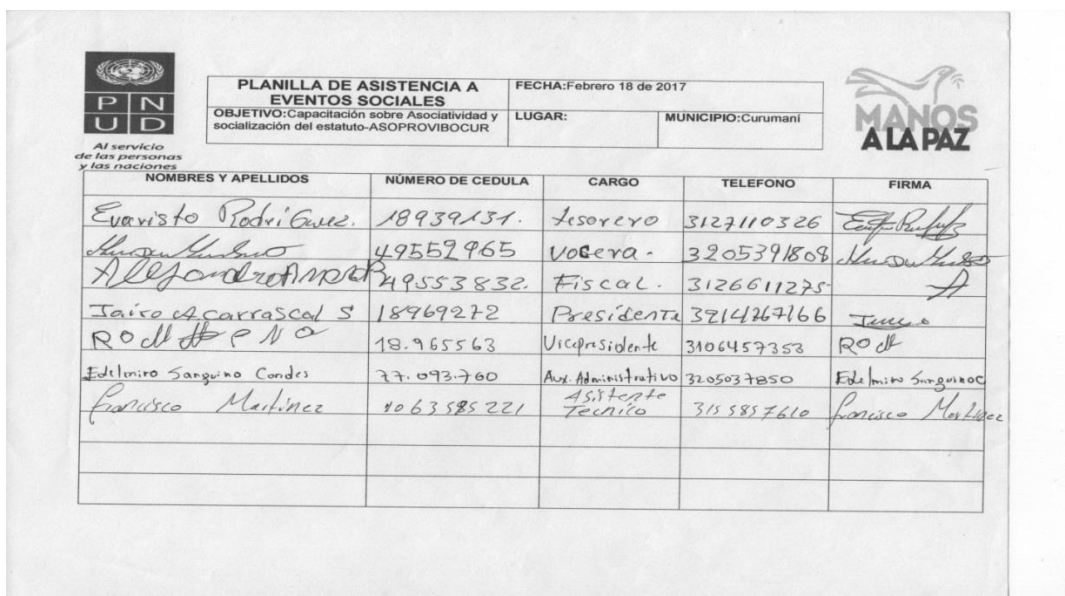 P N
U D
Al servicio
de las personas
y las naciones
PLANILLA DE ASISTENCIA A
EVENTOS SOCIALES
FECHA:Febrero 18 de 2017
OBJETIVO:Capacitación sobre Asociatividad y
socialización del estatuto-ASOPROVIBOCUR
LUGAR: MUNICIPIO:Curumaní
MANOS
A LA PAZ
NOMBRES Y APELLIDOS NÚMERO DE CEDULA CARGO TELEFONO FIRMA
Evaristo RodriGuez. 18939131. tesorero 3127110326
49552965 vocera. 3205391808
49553832. Fiscal. 3126611275
Jairo A carrascal S 18969272 Presidente 3214267166
18.965563 Vicepresidente 3106457353
Edelmiro Sanguino Condes 77.093.760 Aux. Administrativo 3205037850 Edelmiro Sanguino C
Francisco Martinez 1063585221 Asistente Tecnico 3155857610 Francisco Martinez